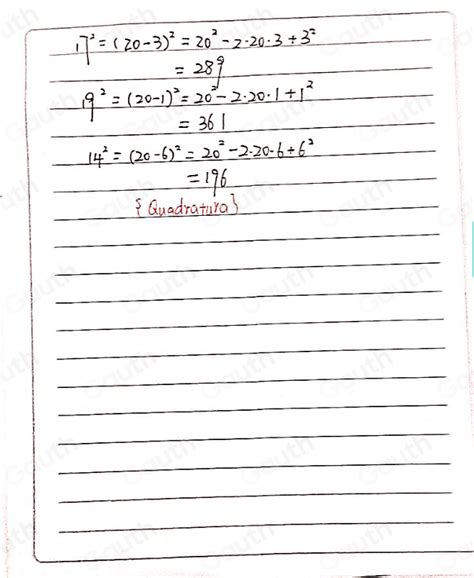 17² = (20-3)² = 20² - 2·20·3 + 3²
= 289
19² = (20-1)² = 20² - 2·20·1 + 1²
= 361
14² = (20-6)² = 20² - 2·20·6 + 6²
= 196
{Quadratura}